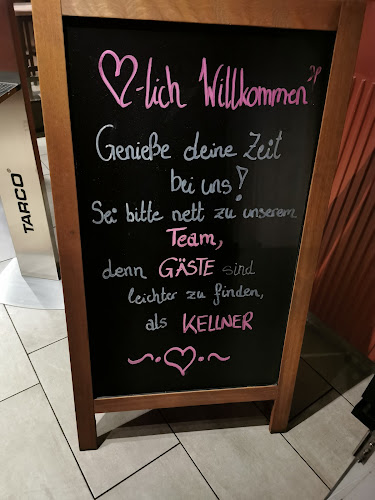 ♡-lich Willkommen
Genieße deine Zeit
bei uns!
Sei bitte nett zu unserem
Team,
denn GÄSTE sind
leichter zu finden,
als KELLNER
TARCO